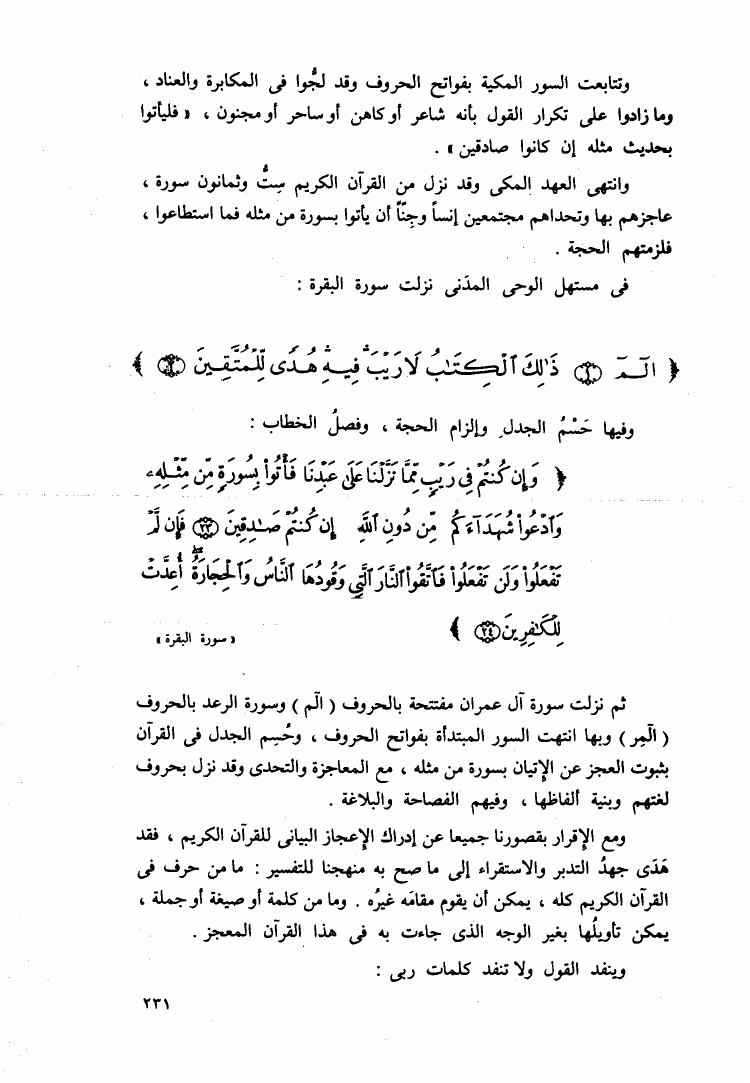 وتتابعت السور المكية بفواتح الحروف وقد لجُّوا فى المكابرة والعناد ،
وما زادوا على تكرار القول بأنه شاعر أو كاهن أو ساحر أو مجنون ، « فليأتوا
بحديث مثله إن كانوا صادقين » .
وانتهى العهد المكى وقد نزل من القرآن الكريم ستٌّ وثمانون سورة ،
عاجزهم بها وتحداهم مجتمعين إنساً وجِنًّا أن يأتوا بسورة من مثله فما استطاعوا ،
فلزمتهم الحجة .
فى مستهل الوحى المدَنى نزلت سورة البقرة :
﴿ الٓمٓ ۝١ ذَٰلِكَ ٱلْكِتَٰبُ لَا رَيْبَ ۛ فِيهِ ۛ هُدًى لِّلْمُتَّقِينَ ۝٢ ﴾
وفيها حَسْمُ الجدل وإلزام الحجة ، وفصلُ الخطاب :
﴿ وَإِن كُنتُمْ فِى رَيْبٍ مِّمَّا نَزَّلْنَا عَلَىٰ عَبْدِنَا فَأْتُوا۟ بِسُورَةٍ مِّن مِّثْلِهِۦ
وَٱدْعُوا۟ شُهَدَآءَكُم مِّن دُونِ ٱللَّهِ إِن كُنتُمْ صَٰدِقِينَ ۝٢٣ فَإِن لَّمْ
تَفْعَلُوا۟ وَلَن تَفْعَلُوا۟ فَٱتَّقُوا۟ ٱلنَّارَ ٱلَّتِى وَقُودُهَا ٱلنَّاسُ وَٱلْحِجَارَةُ ۖ أُعِدَّتْ
لِلْكَٰفِرِينَ ۝٢٤ ﴾
« سورة البقرة »
ثم نزلت سورة آل عمران مفتتحة بالحروف ( الٓم ) وسورة الرعد بالحروف
( الٓمر ) وبها انتهت السور المبتدأة بفواتح الحروف ، وحُسِم الجدل فى القرآن
بثبوت العجز عن الإتيان بسورة من مثله ، مع المعاجزة والتحدى وقد نزل بحروف
لغتهم وبنية ألفاظها ، وفيهم الفصاحة والبلاغة .
ومع الإقرار بقصورنا جميعا عن إدراك الإعجاز البيانى للقرآن الكريم ، فقد
هَدَى جهدُ التدبر والاستقراء إلى ما صح به منهجنا للتفسير : ما من حرف فى
القرآن الكريم كله ، يمكن أن يقوم مقامَه غيرُه . وما من كلمة أو صيغة أو جملة ،
يمكن تأويلُها بغير الوجه الذى جاءت به فى هذا القرآن المعجز .
وينفد القول ولا تنفد كلمات ربى :
٢٣١